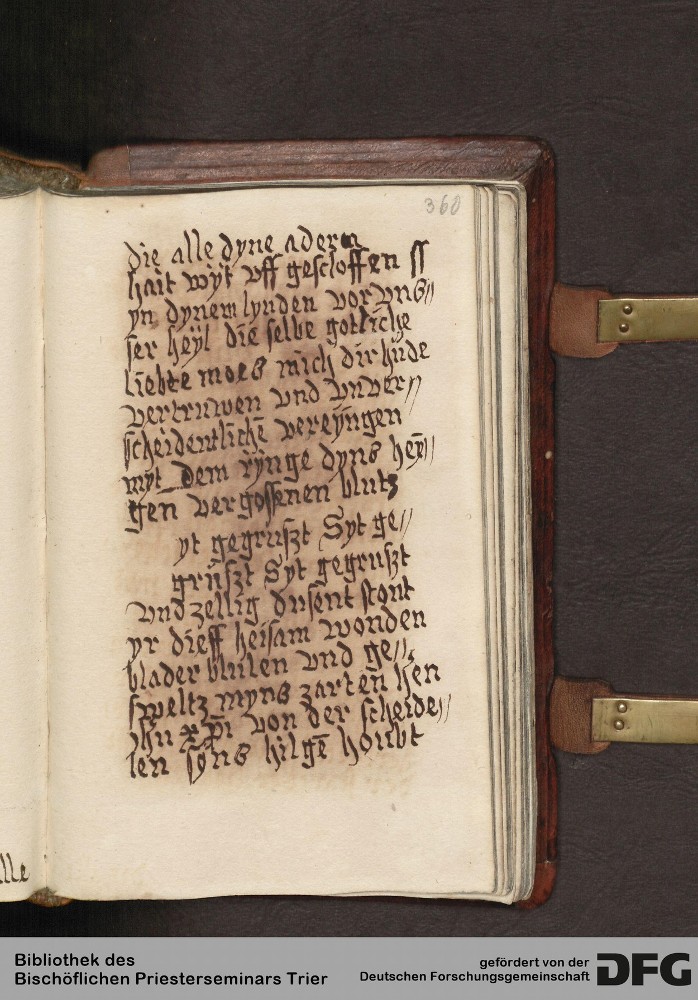 360
die alle dyne adern
hait wyt vff gescloffen
yn dynem lynden vor vns//
ser heÿl die selbe gotliche
liebte moes mich dir hude
vertruwen vnd vnver//
scheidentlichē vereÿngen
myt dem rÿnge dyns heÿ//
gen vergossenen blutz
yt gegruszt Syt ge//
grüszt Syt gegruszt
vnd zellig dusent stont
yr dieff heisam wonden
blader bluilen vnd ge//
sweltz myns zarten hen
ihu xp̄i von der scheide//
len sÿns hilgē houbt
lle
Bibliothek des
Bischöflichen Priesterseminars Trier
gefördert von der
Deutschen Forschungsgemeinschaft DFG